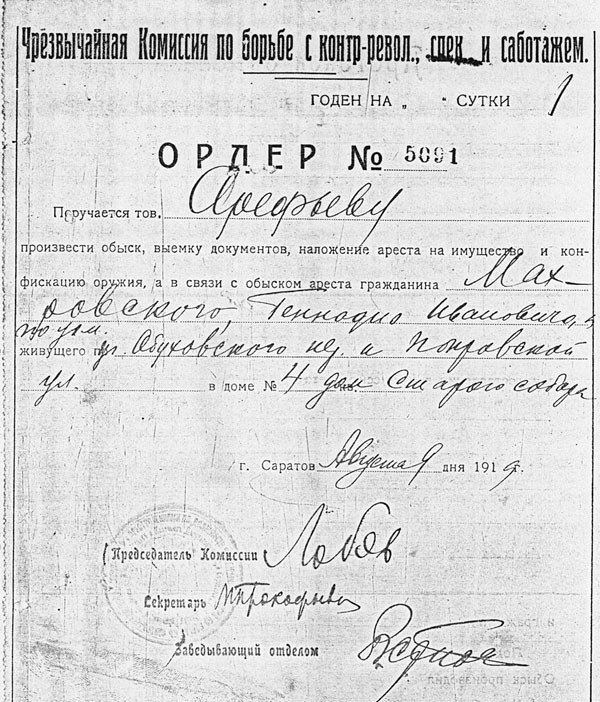 Чрезвычайная Комиссия по борьбе с контр-револ., спек. и саботажем.
ГОДЕН НА „ “ СУТКИ 1
ОРДЕР № 5091
Поручается тов. Арефьеву
произвести обыск, выемку документов, наложение ареста на имущество и кон-
фискацию оружия, а в связи с обыском ареста гражданина Мах-
ровского, Геннадио Ивановича,
по ул.
живущего п уг. Обуховского пер. и Покровской
ул. в доме № 4 дом Старого собора
г. Саратов Августа 9 дня 1919 г.
Председатель Комиссии Лобов
Секретарь МПрокофьев
Заведывающий отделом